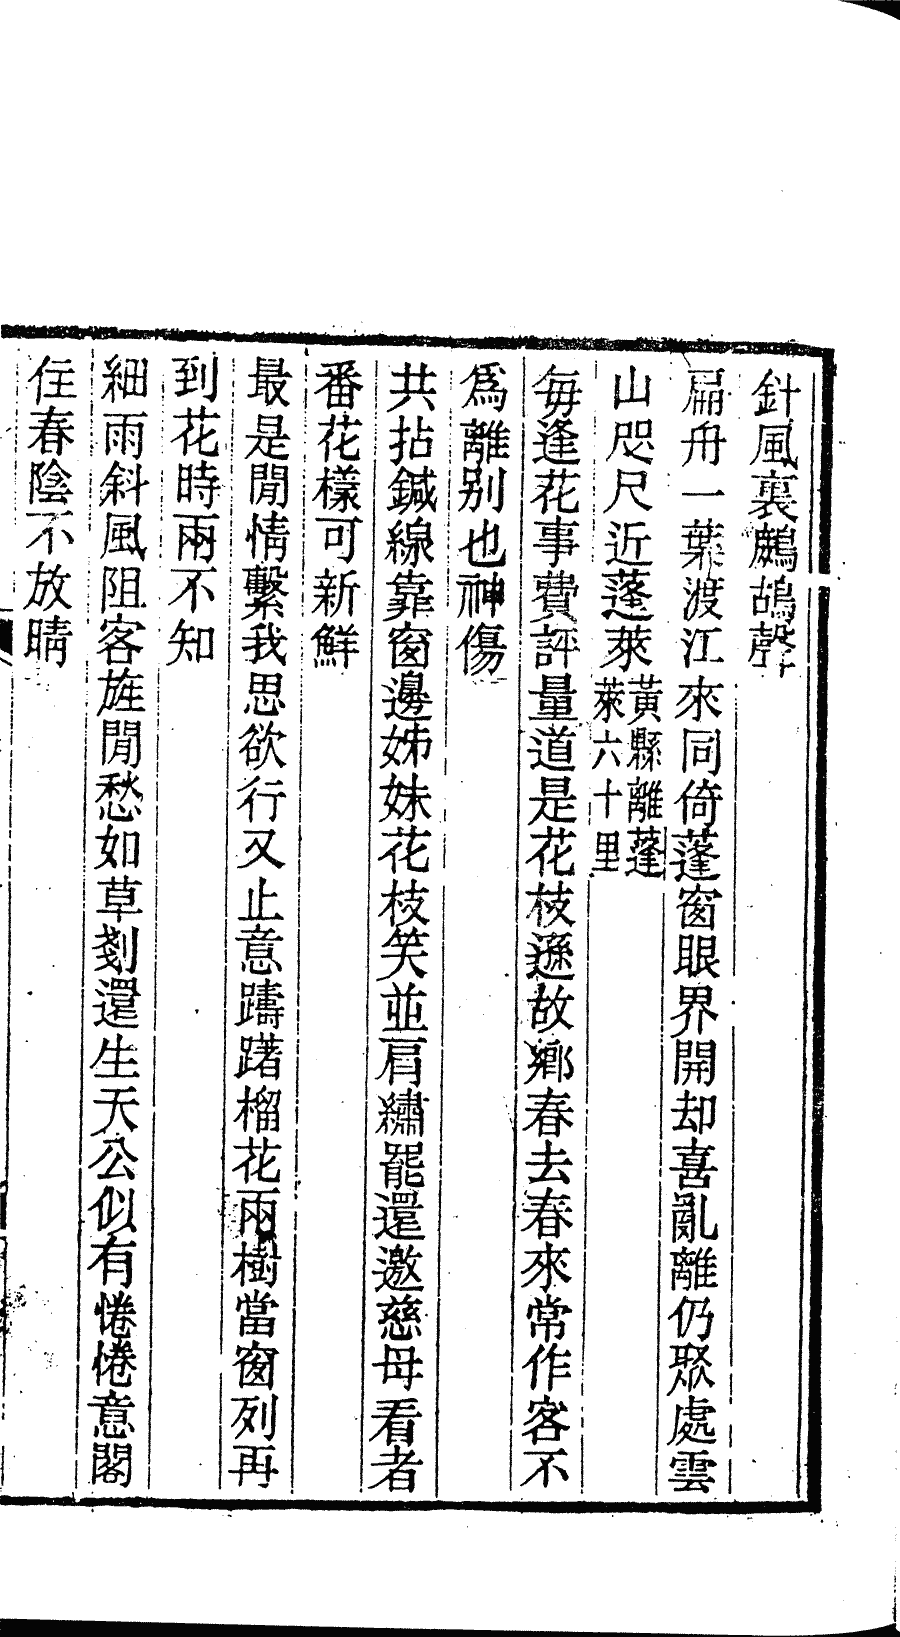 針風裏鷓鴣聲
扁舟一葉渡江來同倚蓬窗眼界開却喜亂離仍聚處雲
山咫尺近蓬萊黃縣離蓬萊六十里
每逢花事費評量道是花枝遜故鄉春去春來常作客不
爲離别也神傷
共拈鍼線靠窗邊姊妹花枝笑並肩繡罷還邀慈母看者
番花樣可新鮮
最是閒情繫我思欲行又止意躊躇榴花兩樹當窗列再
到花時雨不知
細雨斜風阻客旌閒愁如草剗還生天公似有惓惓意閣
住春陰不放晴